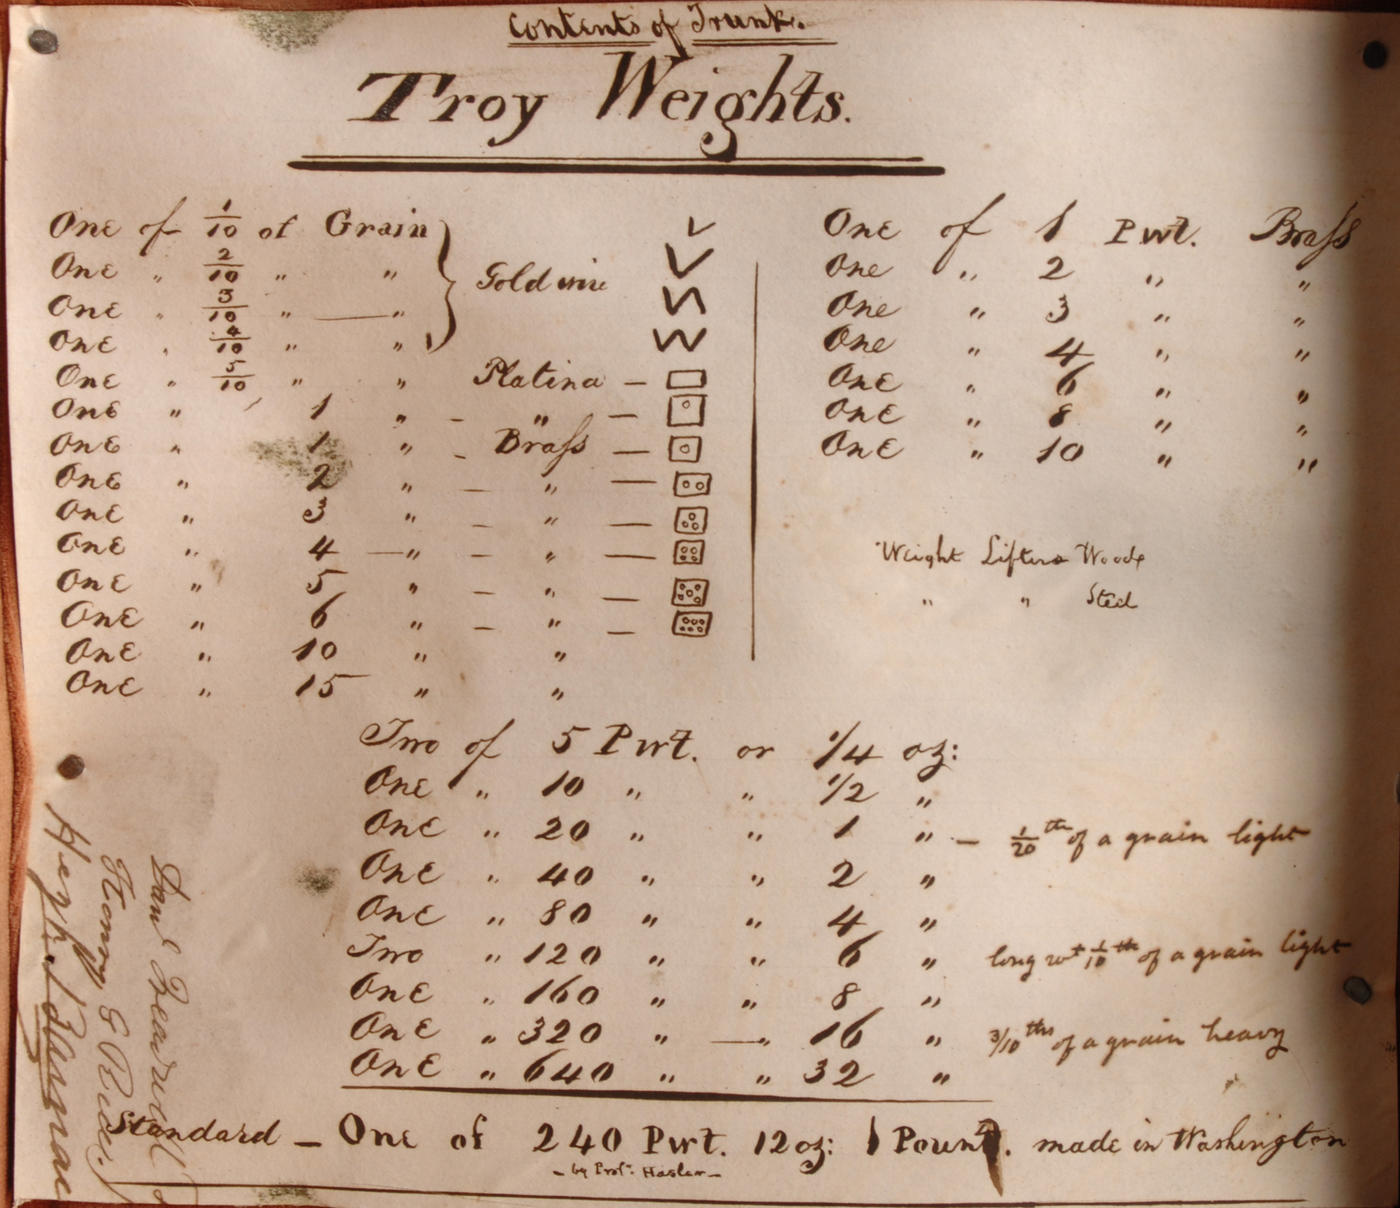 Contents of Trunk.
Troy Weights.
One of 1/10 of Grain
One „ 2/10 „ „ Gold wire
One „ 3/10 „ — „
One „ 4/10 „ „
One „ 5/10 „ „ Platina —
One „ 1 „ – „ —
One „ 1 „ – Brass —
One „ 2 „ – „ —
One „ 3 „ – „ —
One „ 4 — „ – „ —
One „ 5 „ – „ —
One „ 6 „ – „ —
One „ 10 „ „
One „ 15 „ „
One of 1 Pwt. Brass
One „ 2 „ „
One „ 3 „ „
One „ 4 „ „
One „ 6 „ „
One „ 8 „ „
One „ 10 „ „
Weight Lifters Wood
„ „ Steel
Two of 5 Pwt. or 1/4 oz:
One „ 10 „ „ 1/2 „
One „ 20 „ „ 1 „ – 1/20th of a grain light
One „ 40 „ „ 2 „
One „ 80 „ „ 4 „
Two „ 120 „ „ 6 „ long wt 1/10th of a grain light
One „ 160 „ „ 8 „
One „ 320 „ — „ 16 „ 3/10ths of a grain heavy
One „ 640 „ „ 32 „
Standard – One of 240 Pwt. 12 oz: 1 Pound. made in Washington
– by Profr. Hasler –
Danl
Henry